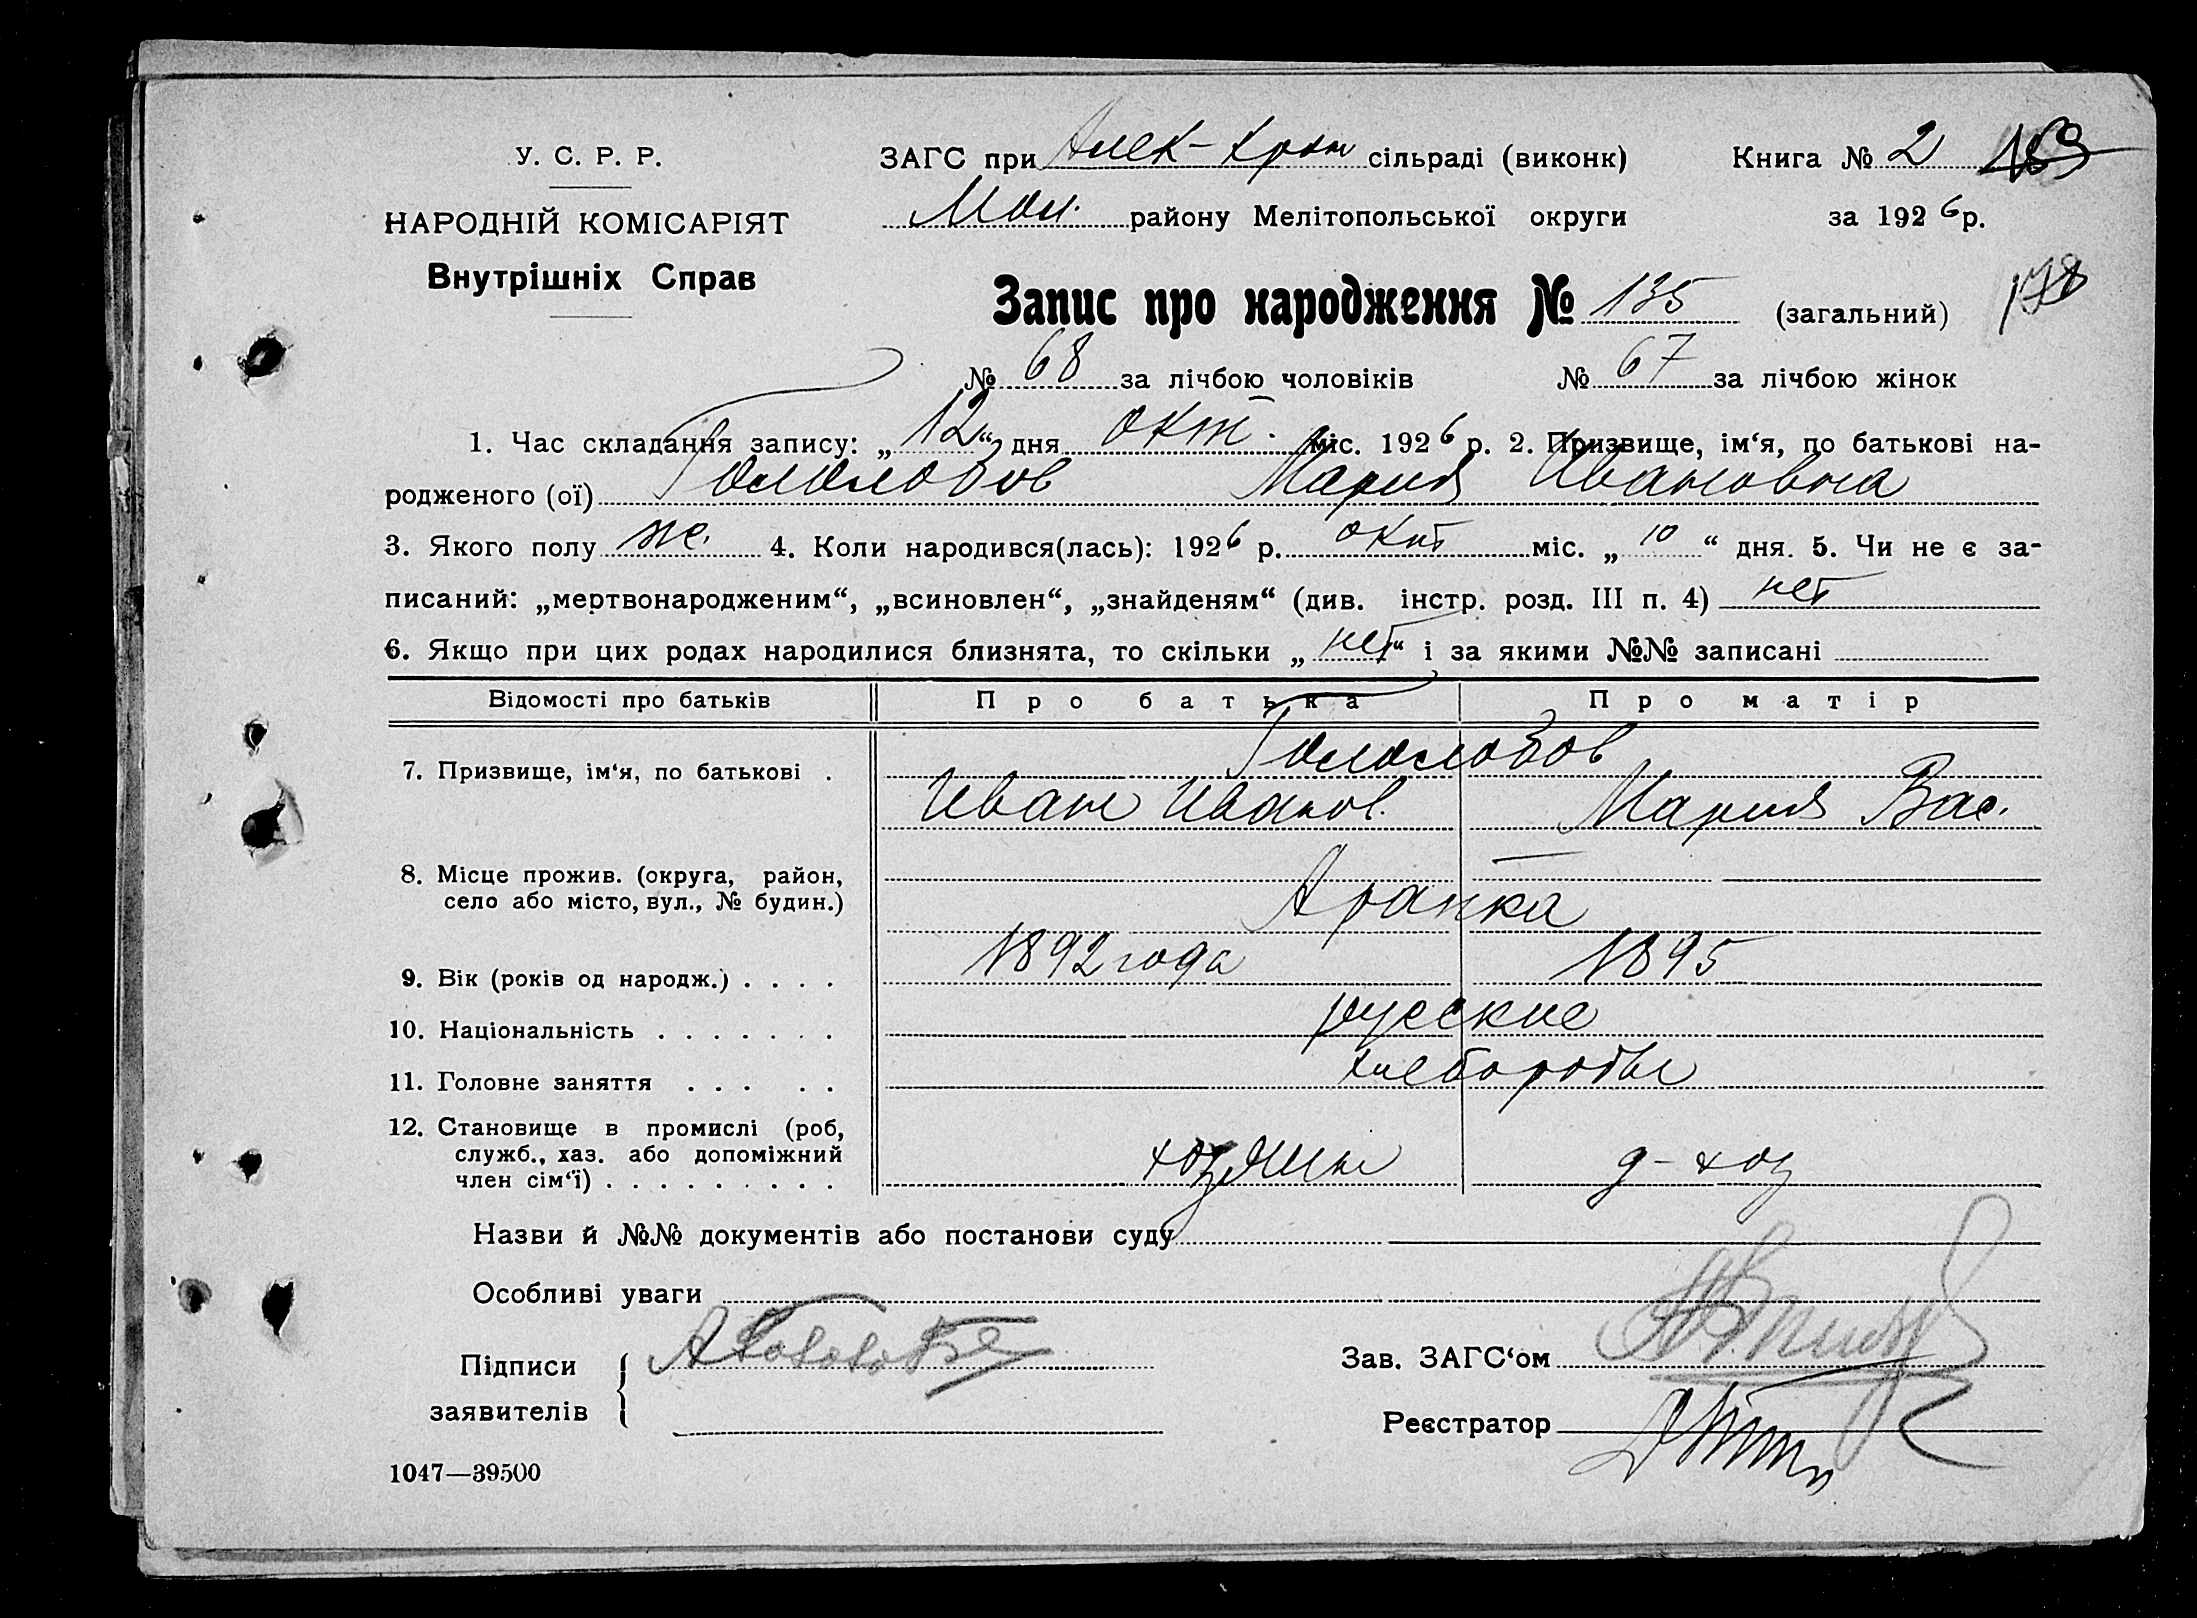 У. С. Р. Р.
НАРОДНІЙ КОМІСАРІЯТ
Внутрішніх Справ
ЗАГС при Алек- сільраді (виконк)
Книга № 2
району Мелітопольської округи
за 1926 р.
Запис про народження № 135 (загальний)
178
№ 68 за лічбою чоловіків № 67 за лічбою жінок
1. Час складання запису: „12“ дня окт. міс. 1926 р. 2. Призвище, ім‘я, по батькові на-
родженого (ої) Гололобов Мария Ивановна
3. Якого полу же. 4. Коли народився(лась): 1926 р. окт міс. „10“ дня. 5. Чи не є за-
писаний: „мертвонародженим“, „всиновлен“, „знайденям“ (див. інстр. розд. III п. 4) нет
6. Якщо при цих родах народилися близнята, то скільки „нет“ і за якими №№ записані
Відомості про батьків Про батька Про матір
7. Призвище, ім‘я, по батькові . Гололобов
Иван Иванов. Мария Вас.
8. Місце прожив. (округа, район,
село або місто, вул., № будин.)
9. Вік (років од народж.) . . . . 1892 года 1895
10. Національність . . . . . . . русские
11. Головне заняття . . . . . хлеборобы
12. Становище в промислі (роб,
служб., хаз. або допоміжний
член сім‘ї) . . . . . . . . . хозяин д-хоз
Назви й №№ документів або постанови суду
Особливі уваги
Підписи
заявителів
Зав. ЗАГС‘ом
Реєстратор
1047—39500